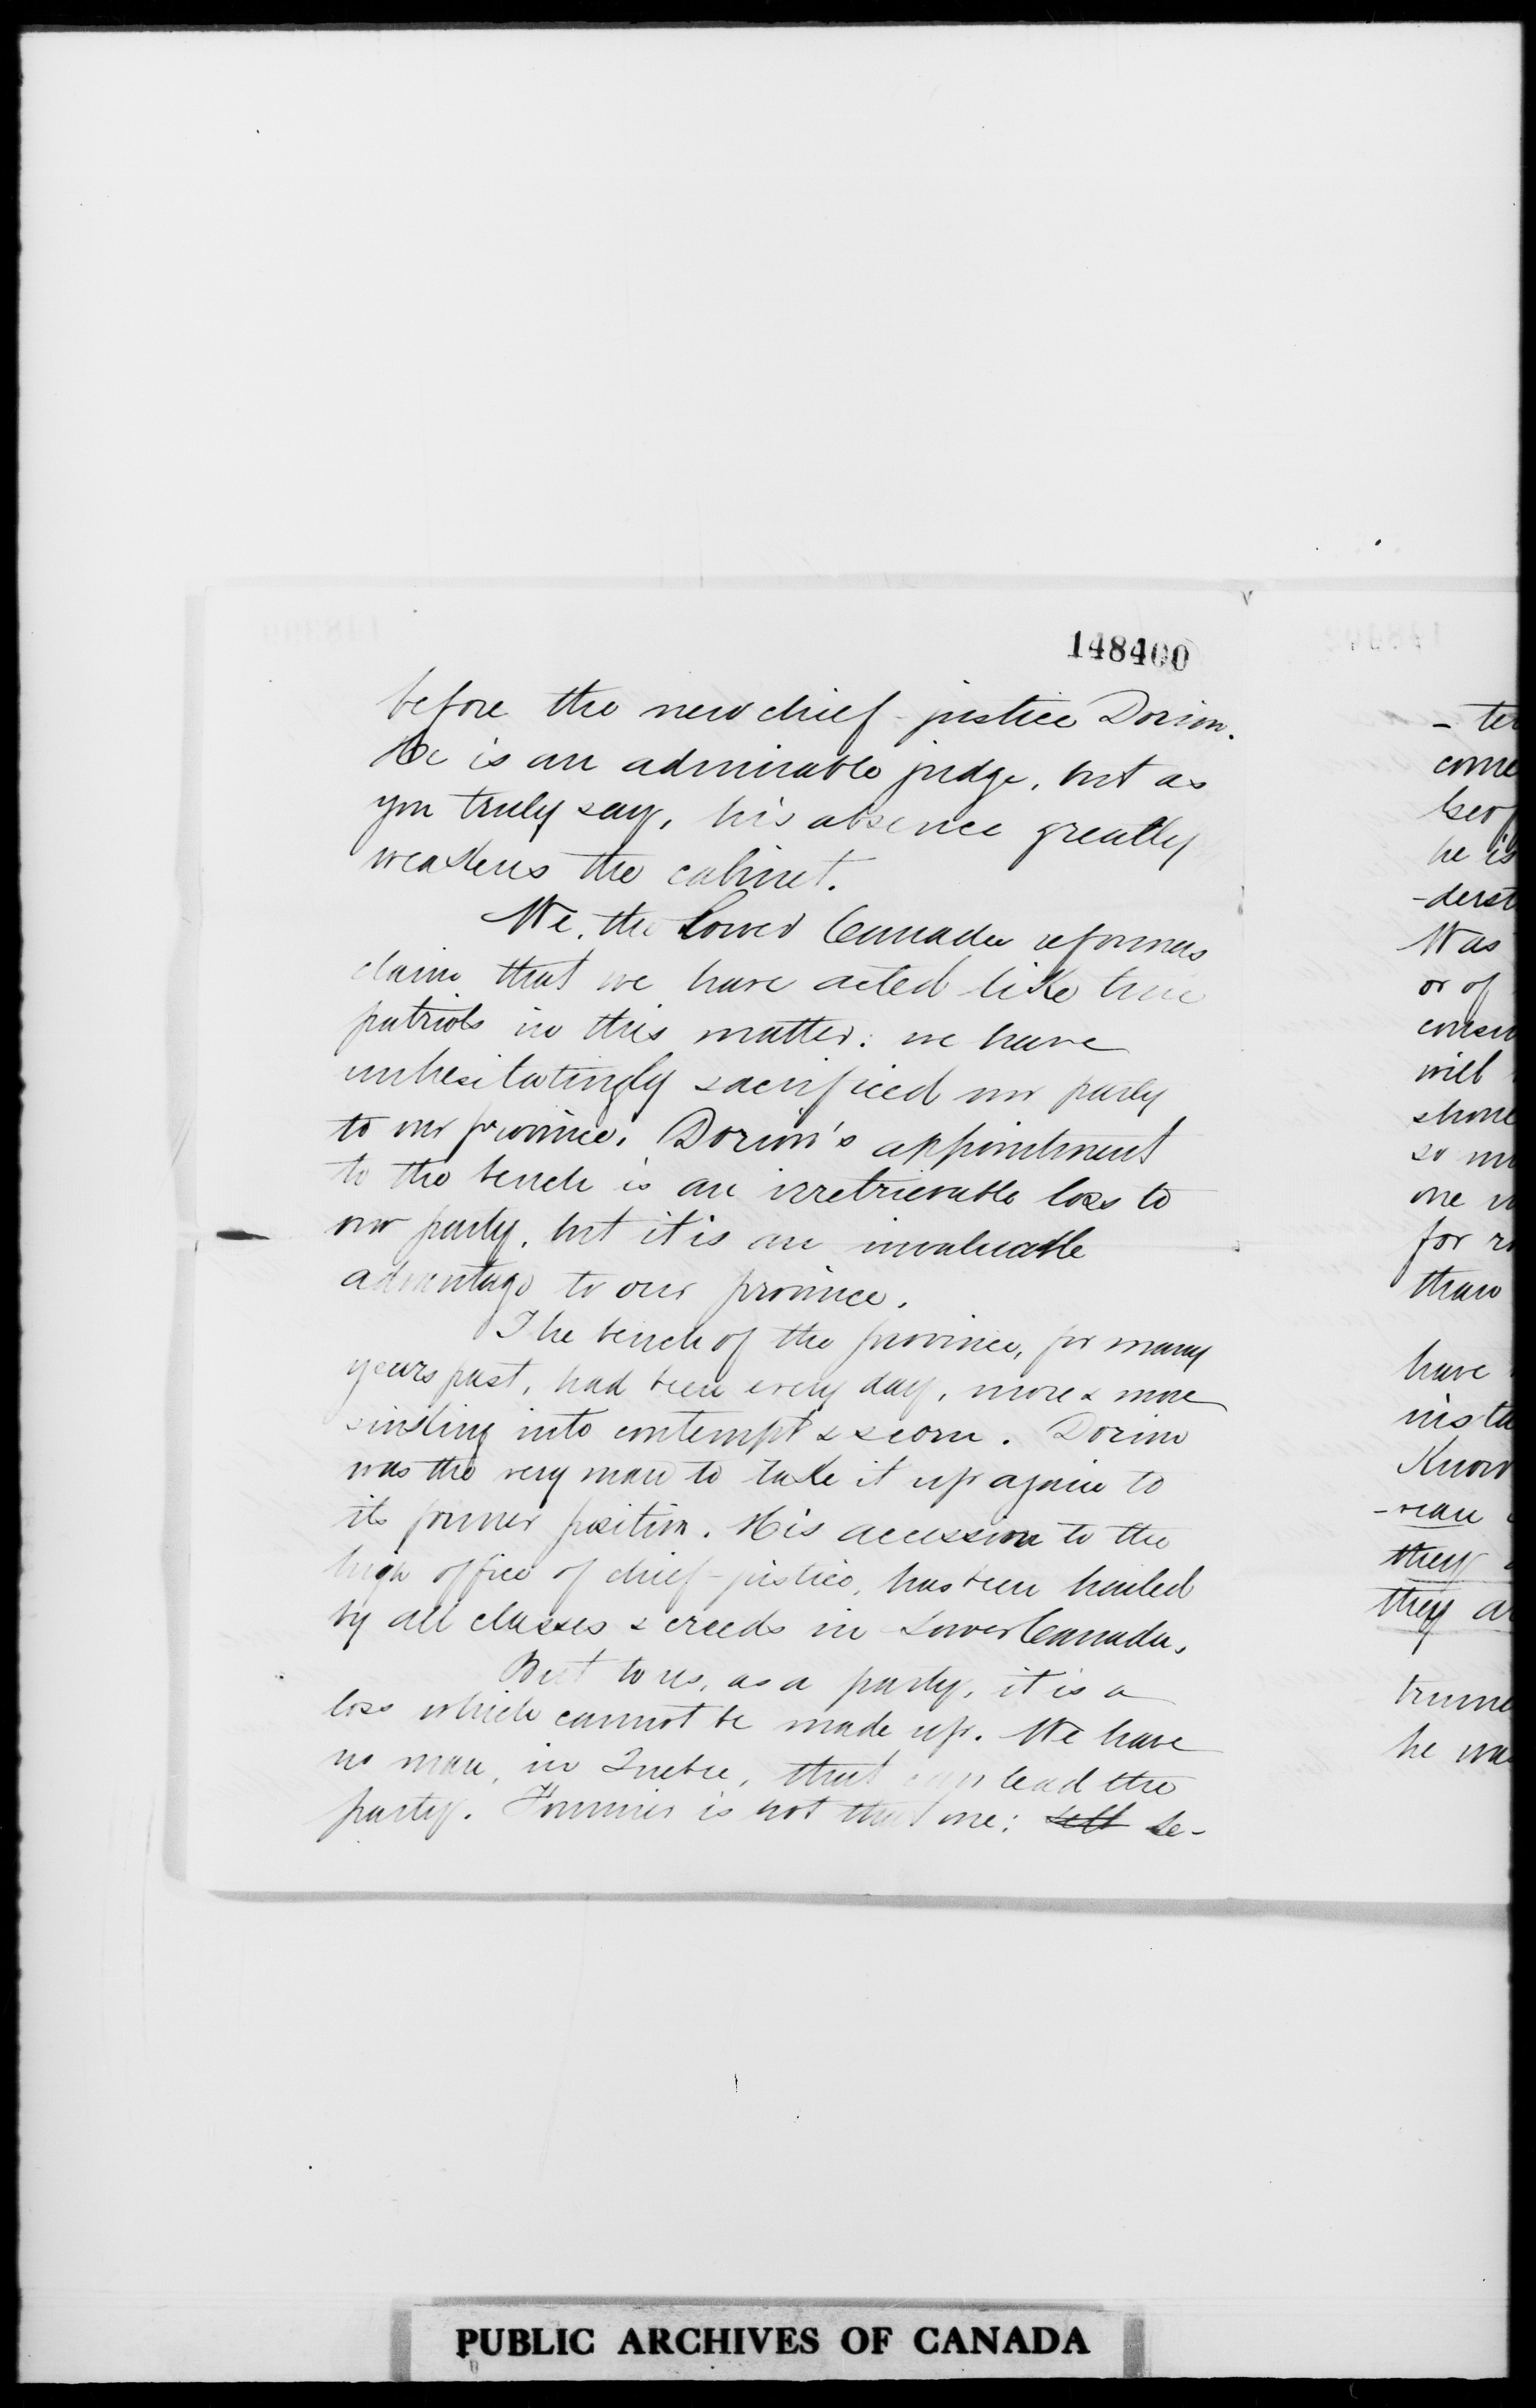 148400
before the new chief-justice Dorion.
He is an admirable judge, but as
you truly say, his absence greatly
weakens the cabinet.
We, the Lower Canada reformers
claim that we have acted like true
patriots in this matter: we have
unhesitatingly sacrificed our party
to our province. Dorion's appointment
to the bench is an irretrievable loss to
our party, but it is an invaluable
advantage to our province.
The bench of the province, for many
years past, had been every day, more & more
sinking into contempt & scorn. Dorion
was the very man to take it up again to
its former position. His accession to the
high office of chief-justice, has been hailed
by all classes & creeds in Lower Canada.
But to us, as a party, it is a
loss which cannot be made up. We have
no man, in Quebec, that can lead the
party. Fournier is not that one: Le-
- ter
come
he is
-derst
Was
or of
will
so
one
for
than
have
Know
they
they ar
he wa
PUBLIC ARCHIVES OF CANADA